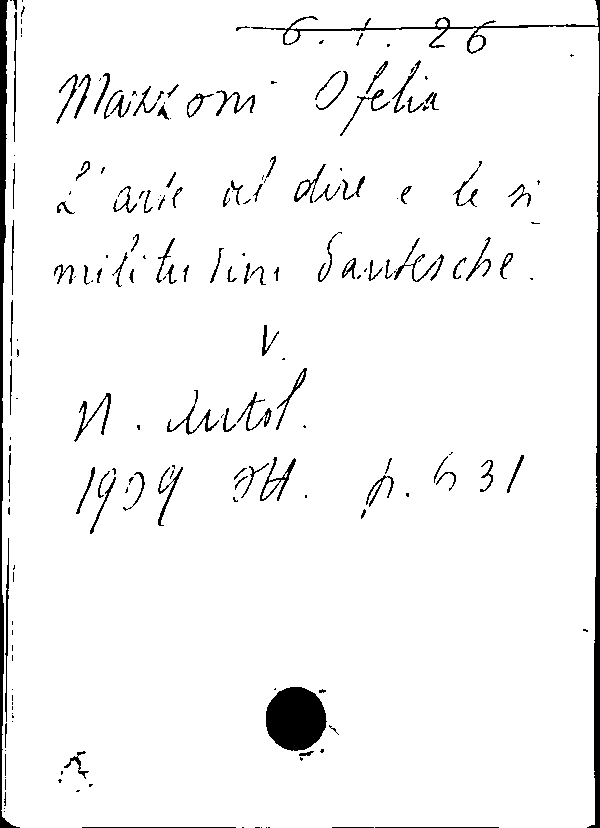 6.1.26
Mazzoni Ofelia
L'arte del dire e le si
militudini dantesche.
V.
N. Antol.
1909 Ott. p. 531